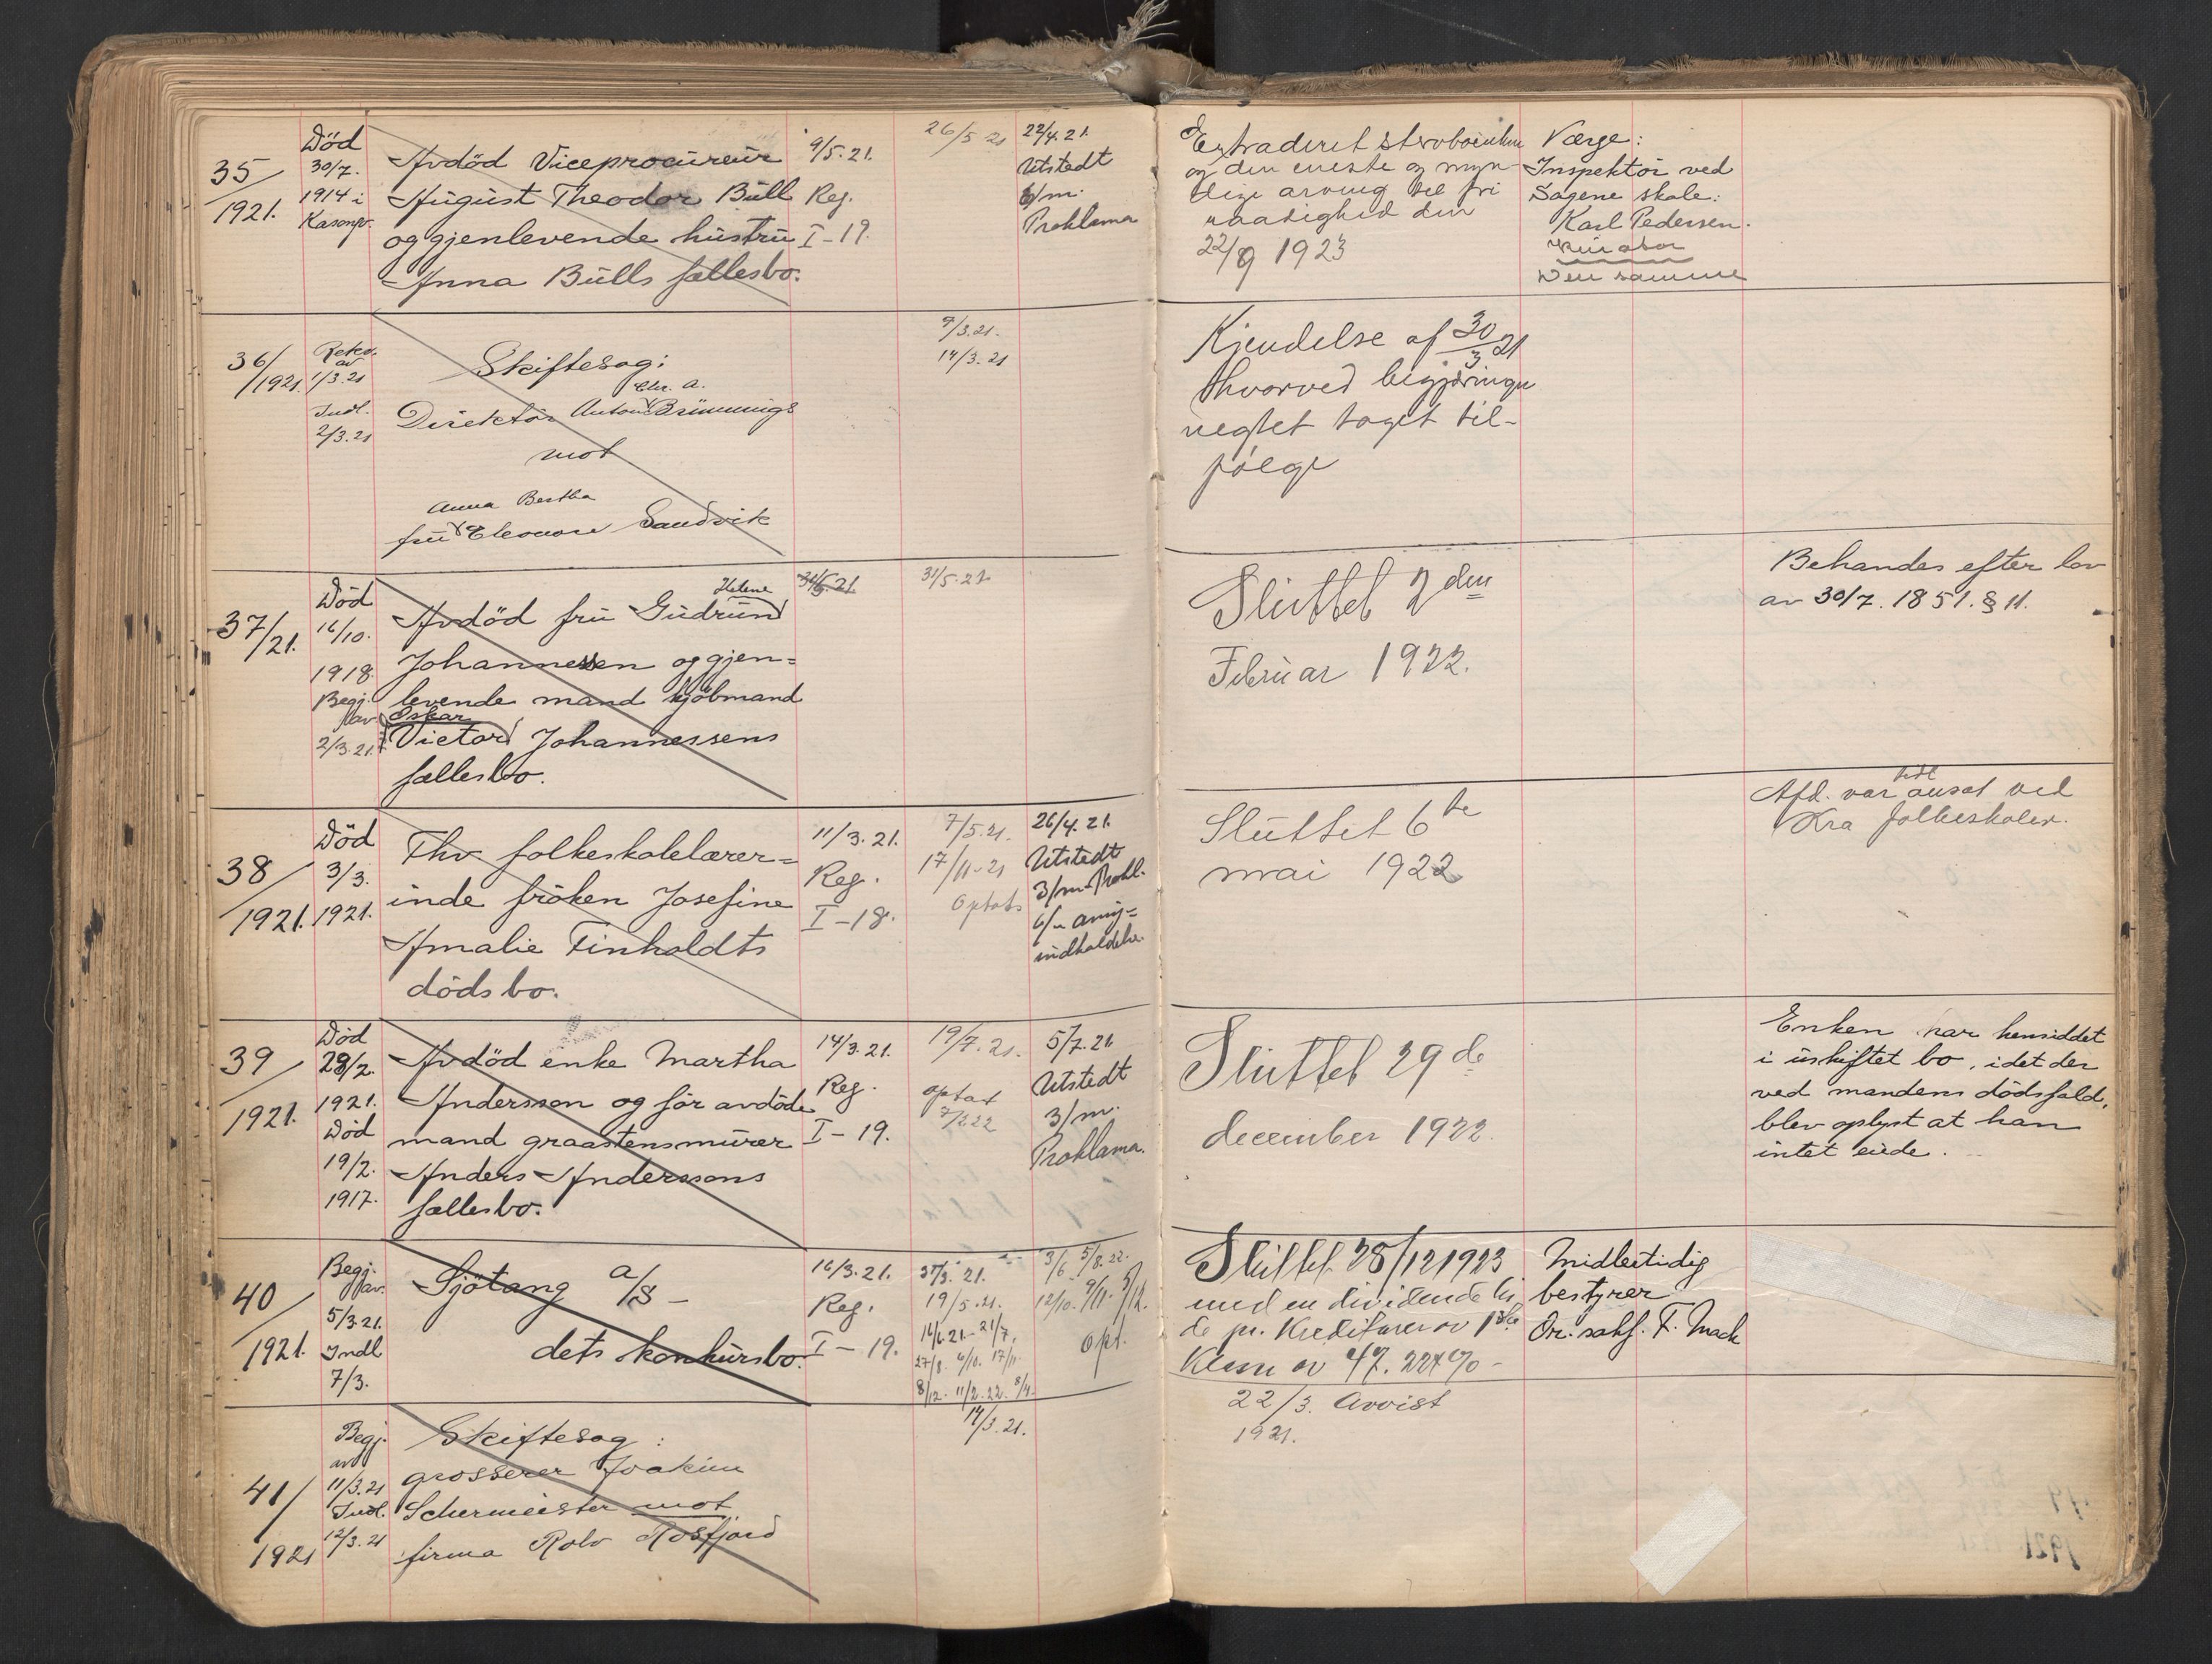 35/1921.
Död
30/7.
1914 i
Avdöd Viceprocureur
August Theodor Bull
og gjenlevende hustru
Anna Bulls fællesbo.
9/5.21.
Reg.
I-19.
26/5 21
22/4.21.
Utstedt
6/m.
Proklama
Extraderet
og den eneste og myn-
dige arving til fri
raadighed den
22/9 1923
Værge:
Inspektör ved
Sagene skole:
Karl Pedersen.
Kurator
Den samme
36/1921.
Rekv.
av
1/3.21
Indl.
2/3.21
Skiftesag:
Chr. A.
Direktör Anton Brünnings
mot
Anna Bertha
fru Eleonore Sandvik
7/3.21.
14/3.21
Kjendelse af 30/3 21
hvorved begjæringen
negtet taget til-
følge
37/21.
Död
16/10.
1918.
Begj.
av
2/3.21.
Helene
Avdöd fru Gudrun
Johannessen og gjen=
levende mand kjöbmand
Oskar
Victor Johannessens
fællesbo.
31/5.21
31/5.21
Sluttet 2den
Februar 1922.
Behandles efter lov
av 30/7.1851.§ 11.
38/1921.
Död
3/3.
1921.
Fhv folkeskolelærer=
inde fröken Josefine
Amalie Finholdts
dödsbo.
11/3.21.
Reg.
I-18.
7/5.21.
17/11-21
Optat
26/4.21.
Utstedt
3/m-Prokl.
6/m arving=
indkaldelse.
Sluttet 6te
mai 1922
tidl
Afd. var ansat ved
Kra folkeskoler.
39/1921.
Död
28/2.
1921.
Död
19/2.
1917.
Avdöd enke Martha
Andersson og för avdöde
mand graastensmurer
Anders Anderssons
fællesbo.
14/3.21.
Reg.
I-19.
19/7.21.
optat
7/2 22
5/7.21
Utstedt
3/m.
Proklama.
Sluttet 29de
december 1922.
Enken har hensiddet
i uskiftet bo, idet der
ved mandens dödsfald,
blev oplyst at han
intet eiede.
40/1921.
Begj.
av
5/3.21.
Indl
7/3.
Sjötang A/S -
dets konkursbo.
16/3.21.
Reg.
I-19.
19/5.21.
16/6.21- 21/7.
27/8. 6/10. 17/11
8/12. 11/2.22. 8/4.
3/6. 5/8.22.
12/10. 9/11.
opt.
Sluttet 28/12 1923
med en dividende til
de pr. Kreditorer av
Klasse av 47.224 %-
Midlertidig
bestyrer
Or.sakf. F. Mack
41/1921
Begj.
av
11/3.21
Indl.
12/3.21
Skiftesag:
grosserer Joakim
Schermeister mot
firma Rolv Rosfjord
14/3.21.
22/3. Avvist
1921.